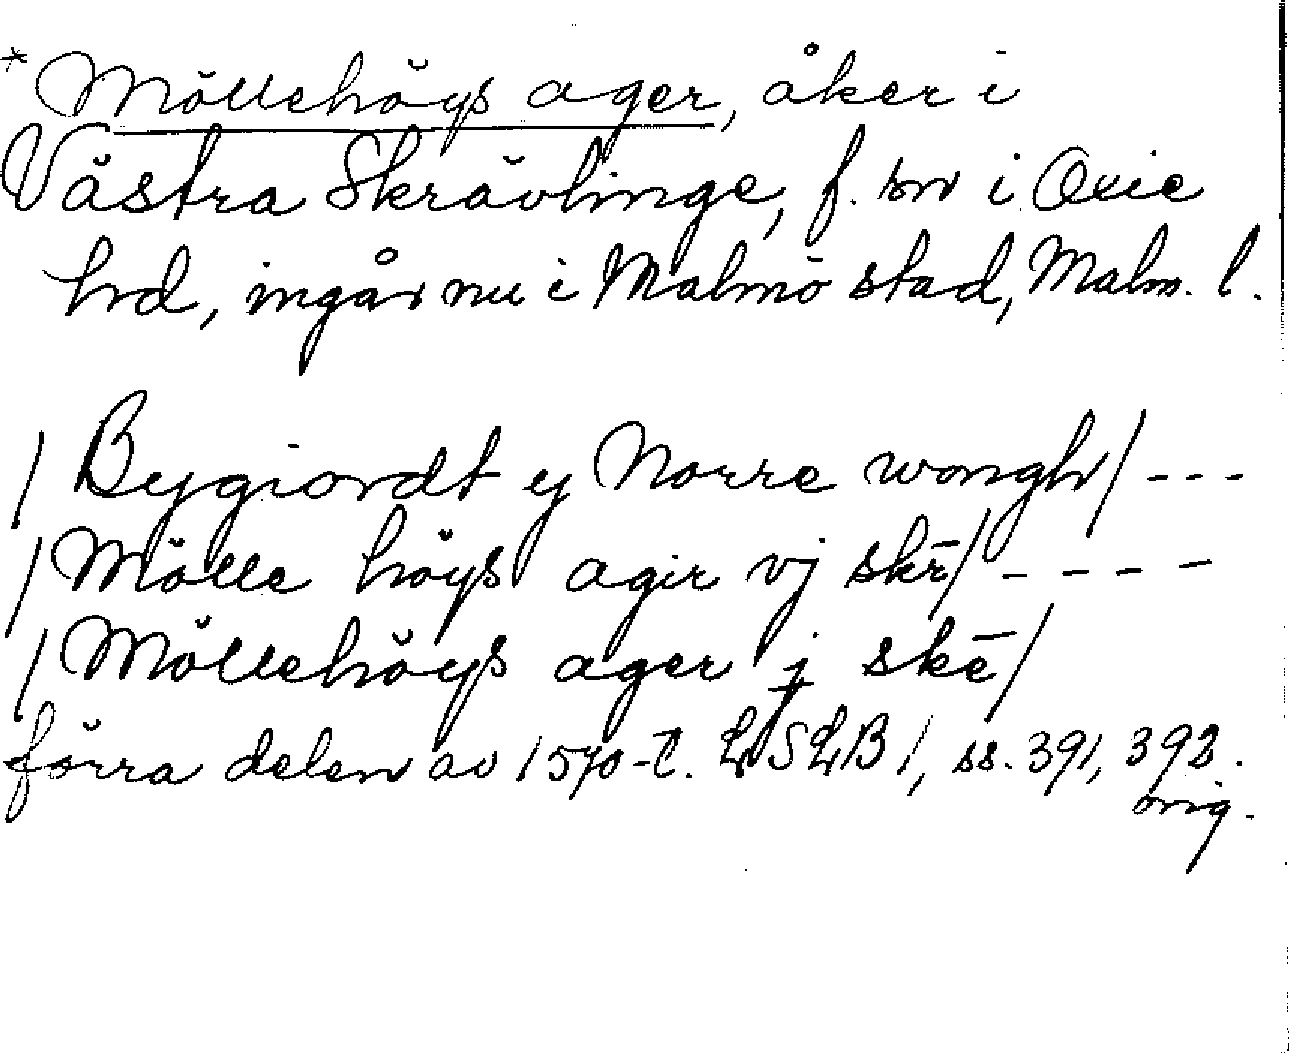 * Möllehöys ager, åker i
Västra Skrävlinge, f. sn i Oxie
hd, ingår nu i Malmö stad, Malm. l.
/Bygiordt y Norre wongh/ ---
/Mölle höys agir vj skē/ ----
/Möllehöys ager j skē/
förra delen av 1570-t. LSLB 1, ss. 391, 393.
orig.